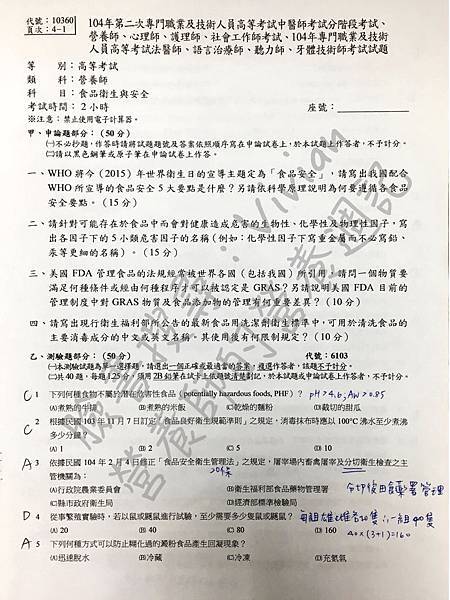 代號：10360
頁次：4-1
104年第二次專門職業及技術人員高等考試中醫師考試分階段考試、
營養師、心理師、護理師、社會工作師考試、104年專門職業及技術
人員高等考試法醫師、語言治療師、聽力師、牙體技術師考試試題
等　　別：高等考試
類　　科：營養師
科　　目：食品衛生與安全
考試時間：2小時
座號：
※注意：禁止使用電子計算器。
甲、申論題部分：（50分）
㈠不必抄題，作答時請將試題題號及答案依照順序寫在申論試卷上，於本試題上作答者，不予計分。
㈡請以黑色鋼筆或原子筆在申論試卷上作答。
一、WHO將今（2015）年世界衛生日的宣導主題定為「食品安全」，請寫出我國配合
WHO所宣導的食品安全5大要點是什麼？另請依科學原理說明為何要遵循各食品
安全要點。（15分）
二、請針對可能存在於食品中而會對健康造成危害的生物性、化學性及物理性因子，寫
出各因子下的5小類危害因子的名稱（例如：化學性因子下寫重金屬而不必寫鉛、
汞等更細的名稱）。（15分）
三、美國FDA管理食品的法規經常被世界各國（包括我國）所引用。請問一個物質要
滿足何種條件或經由何種程序才可以被認定是GRAS？另請說明美國FDA目前的
管理制度中對GRAS物質及食品添加物的管理有何重要差異？（10分）
四、請寫出現行衛生福利部所公告的最新食品用洗潔劑衛生標準中，可用於清洗食品的
主要消毒成分的中文或英文名稱。其使用後有何限制規定？（10分）
乙、測驗題部分：（50分）
代號：6103
㈠本測驗試題為單一選擇題，請選出一個正確或最適當的答案，複選作答者，該題不予計分。
㈡共40題，每題1.25分，須用2B鉛筆在試卡上依題號清楚劃記，於本試題或申論試卷上作答者，不予計分。
C 1 下列何種食物不屬於潛在危害性食品（potentially hazardous foods, PHF）？ pH>4.6; Aw>0.85
(A)煮熟的牛排 (B)煮熟的米飯 (C)乾燥的麵粉 (D)截切的甜瓜
C 2 根據民國103年11月7日訂定「食品良好衛生規範準則」之規定，消毒抹布時應以100℃沸水至少煮沸
多少分鐘？
(A)1 (B)3 (C)5 (D)10
A 3 依據民國104年2月4日修正「食品安全衛生管理法」之規定，屠宰場內畜禽屠宰及分切衛生檢查之主
管機關為：
20條
(A)行政院農業委員會 (B)衛生福利部食品藥物管理署
(C)縣市政府衛生局 (D)經濟部標準檢驗局
D 4 從事繁殖實驗時，若以鼠或鼴鼠進行試驗，至少需要多少隻鼠或鼴鼠？
(A)20 (B)40 (C)80 (D)160
40×(3+1)=160
A 5 下列何種方式可以防止糊化過的澱粉食品產生回凝現象？
(A)迅速脫水 (B)冷藏 (C)冷凍 (D)充氮氣
臉書搜尋：Vivian
營養師的營養週記